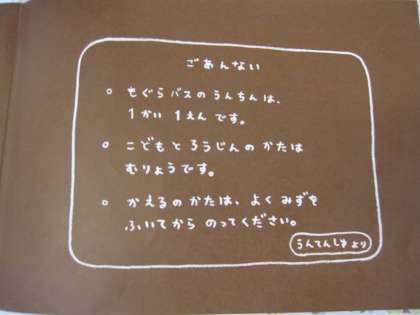 ごあんない
○ もぐらバスのうんちんは、
1かい 1えんです。
○ こどもと ろうじんの かたは
むりょうです。
○ かえるの かたは、よく みずを
ふいてから のってください。
うんてんしゅより